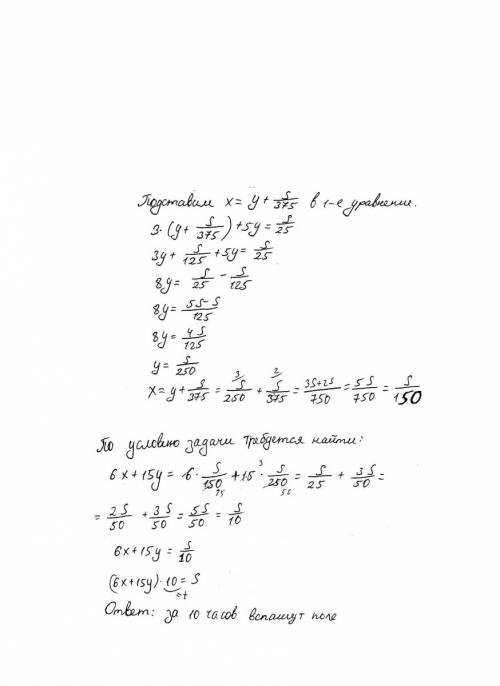 Подставим x = y + S/375 в 1-е уравнение.
3·(y + S/375) + 5y = S/25
3y + S/125 + 5y = S/25
8y = S/25 - S/125
8y = 5S-S/125
8y = 4S/125
y = S/250
x = y + S/375 = S/250 3 + S/375 2 = 3S+2S/750 = 5S/750 = S/150
По условию задачи требуется найти:
6x + 15y = 6· S/150 25 + 15 3 · S/250 50 = S/25 + 3S/50 =
= 2S/50 + 3S/50 = 5S/50 = S/10
6x + 15y = S/10
(6x + 15y)·10 = S
t
Ответ: за 10 часов вспашут поле